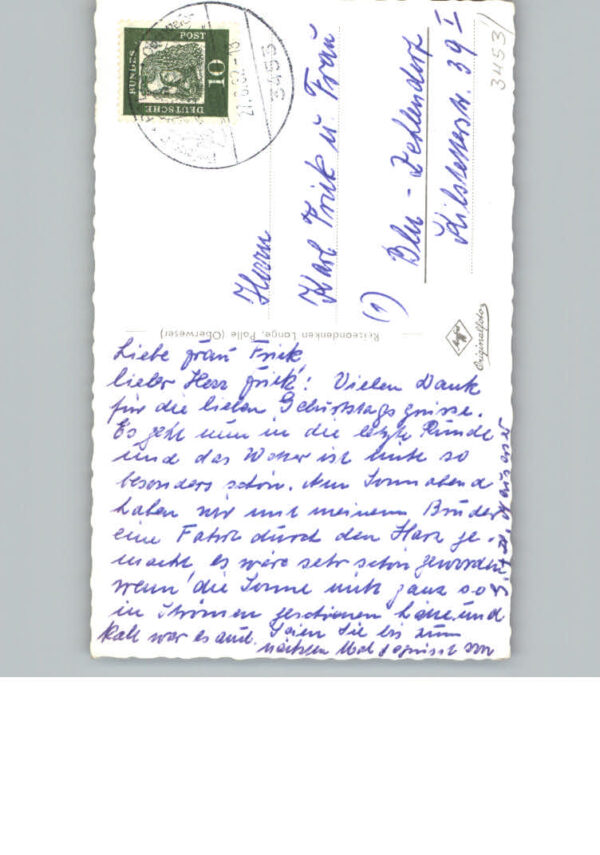 DEUTSCHE
BUNDES
POST
10
3453
3453
Herrn
Karl Frick u. Frau
(1) Bln-Zehlendorf
39 I
Reiseandenken Lange, Polle (Oberweser)
Agfa
Originalfoto
Liebe Frau Frick,
lieber Herr Frick! Vielen Dank
für die lieben Geburtstagsgrüsse.
Es geht nun in die letzte Runde
und das Wetter ist heute so
besonders schön. Am Sonnabend
haben wir mit meinem Bruder
eine Fahrt durch den Harz ge-
macht, es wäre sehr schön geworden
wenn die Sonne nicht ganz so
in Strömen geschienen hätte und
kalt war es auch. Seien Sie bis zum
nächsten Mal gegrüsst von